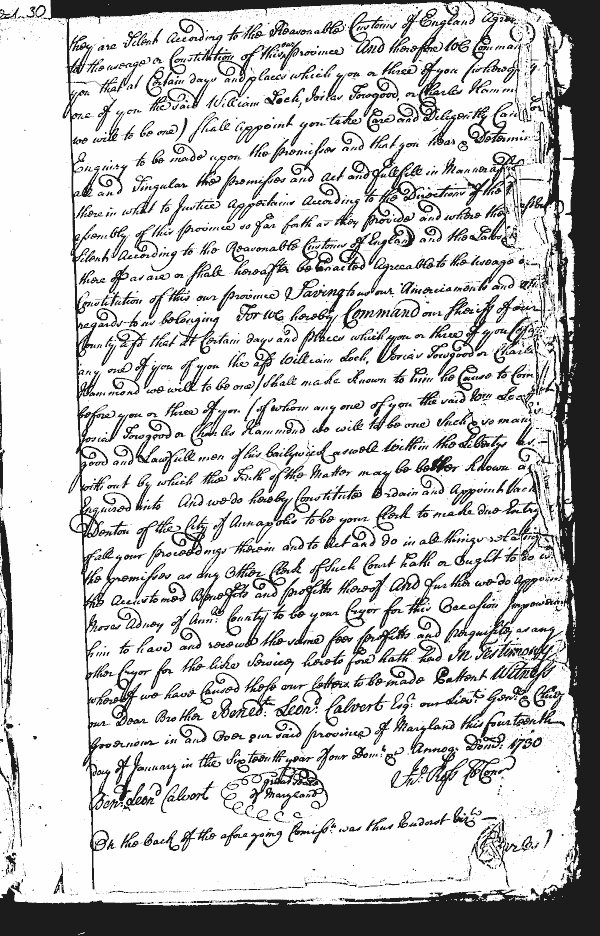 21.30
they are Silent According to the Reasonable Customs of England Agree
to the useage or Constitution of this our province And therefore We Comman
you that at Certain days and places which you or three of you (whereof
one of you the said William Lock, Josias Towgood or Charles Hamm
we will to be one) Shall appoint you take Care and Diligently Cau
Enquiry to be made upon the premisses and that you hear & Determin
all and Singular the premisses and Act and fulfill in Manner afs
there in what to Justice Appertains According to the Directions of the
assembly of this province so far forth as they provide and where the
Silent According to the Reasonable Customs of England and the Laws
there of as are or shall hereafter be Enacted Agreeable to the useage or
Constitution of this our province Saving to us our Amerciaments and oth
regards to us belonging For we hereby Command our Sheriff of our
County afs that at Certain days and places which you or three of you (of
any one of you of you the afs William Lock, Josias Towgood or Charles
Hammond we will to be one) Shall made known to him he Cause to Come
before you or three of you (of whom any one of you the said Wm Lock
Josias Towgood or Charles Hammond we will to be one Such & so man
good and Lawfull men of his bailywick aswell within the Libertys as
without by which the Truth of the Matter may be better known a
Enquired into And we do hereby Constitute Ordain and Appoint Vach
Denton of the City of Annapolis to be your Clerk to make due Entry
of all your proceedings therein and to Act and do in all things relating
the premisses as any Other Clerk of such Court hath or ought to do w
the Accustomed Benefits and profitts thereof And further we do appoint
Moses Adney of Ann: County to be your Cryer for this Occasion Impowering
him to have and receive the same fees profitts and perquisites as any
other Cryer for the like Service heretofore hath had In Testimony
whereof we have Caused these our Letters to be made Pattent Witness
our Dear Brother Bened: Leon: Calvert Esq: our Lieut: Gen: & Chief
Governour in and Over our said province of Maryland this fourteenth
day of January in the Sixteenth year of our Dom: &c Annoq: Dom: 1730
Ben: Leon: Calvert great seal of Maryland Jno: Ross Cl Con
On the back of the afore going Comiss: was thus Endorst viz: